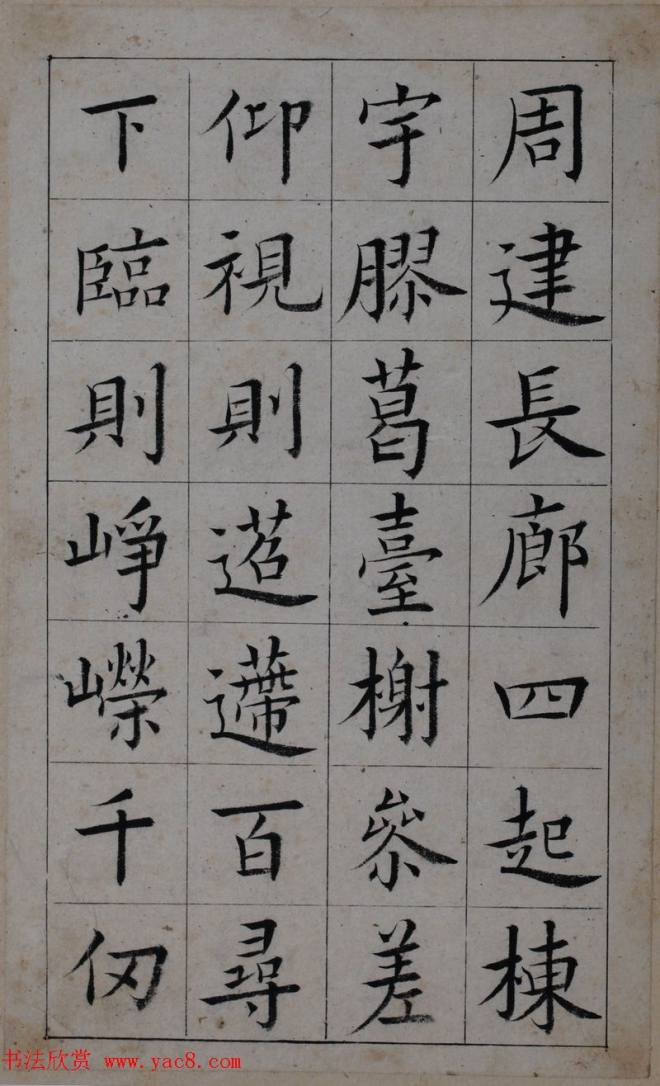 周建長廊四起棟
宇膠葛臺榭參差
仰視則迢遰百尋
下臨則崢嶸千仞
书法欣赏 www.yac8.com